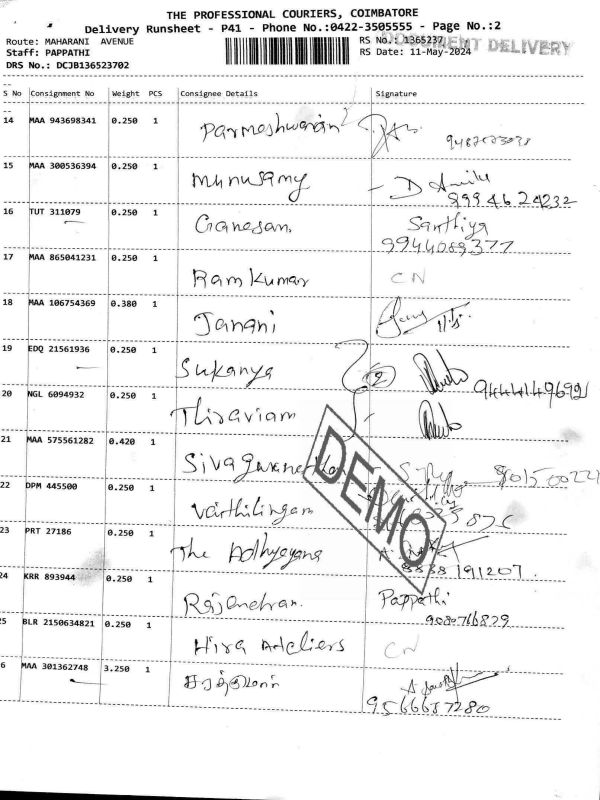 THE PROFESSIONAL COURIERS, COIMBATORE
Delivery Runsheet - P41 - Phone No.:0422-3505555 - Page No.:2
Route: MAHARANI AVENUE RS No.: 1365237
DOCUMENT DELIVERY
Staff: PAPPATHI RS Date: 11-May-2024
DRS No.: DCJB136523702
S No Consignment No Weight PCS Consignee Details Signature
14 MAA 943698341 0.250 1 Parmeshwaran
15 MAA 300536394 0.250 1 Munusamy
9994624232
16 TUT 311079 0.250 1 Ganesan. Santhiya
9944089377
17 MAA 865041231 0.250 1 Ram Kumar CN
18 MAA 106754369 0.380 1 Janani
19 EDQ 21561936 0.250 1 Sukanya 2
20 NGL 6094932 0.250 1 Thiraviam
21 MAA 575561282 0.420 1
22 DPM 445500 0.250 1 Vaithilingam
DEMO
23 PRT 27186 0.250 1 The Adhyayana
8838191207.
24 KRR 893944 0.250 1 Rajendran. Pappathi
25 BLR 2150634821 0.250 1 Hira Ateliers CN
26 MAA 301362748 3.250 1 சரத்குமார்
9566657280